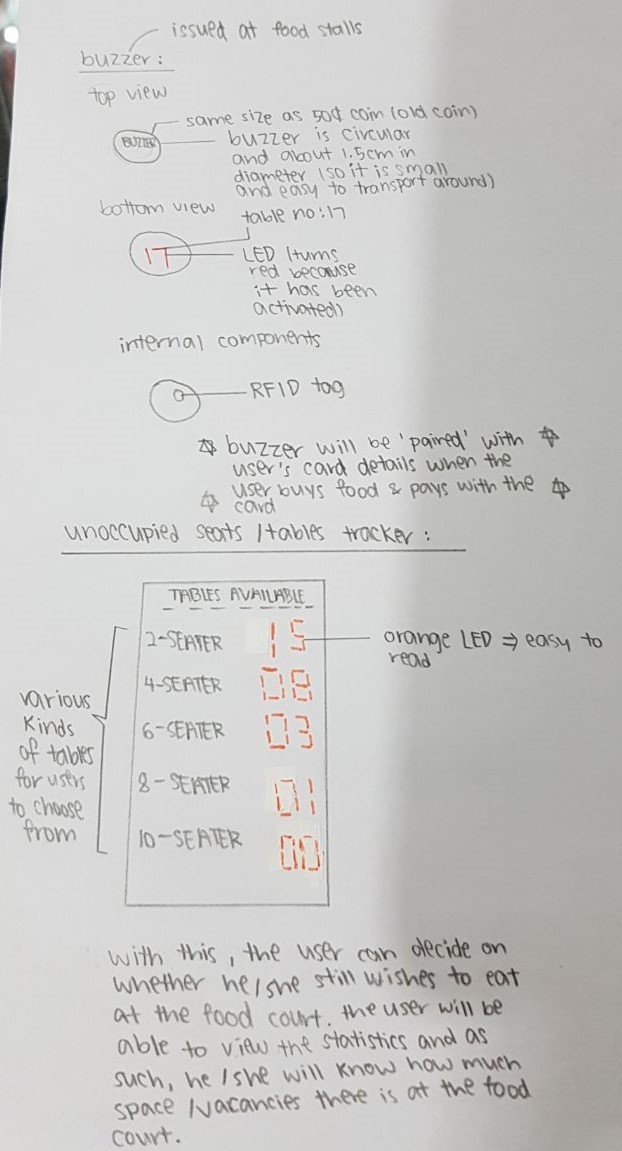 issued at food stalls
buzzer:
top view
same size as 50¢ coin (old coin)
BUZZER
buzzer is circular
and about 1.5cm in
diameter (so it is small
and easy to transport around)
bottom view
table no: 17
17
LED (turns
red because
it has been
activated)
internal components
RFID tag
buzzer will be 'paired' with
user's card details when the
user buys food & pays with the
card
unoccupied seats / tables tracker:
TABLES AVAILABLE
2-SEATER 15
orange LED ⇒ easy to
read
4-SEATER 08
6-SEATER 03
8-SEATER 01
10-SEATER 00
various
kinds
of tables
for users
to choose
from
with this, the user can decide on
whether he/she still wishes to eat
at the food court. the user will be
able to view the statistics and as
such, he/she will know how much
space /vacancies there is at the food
court.